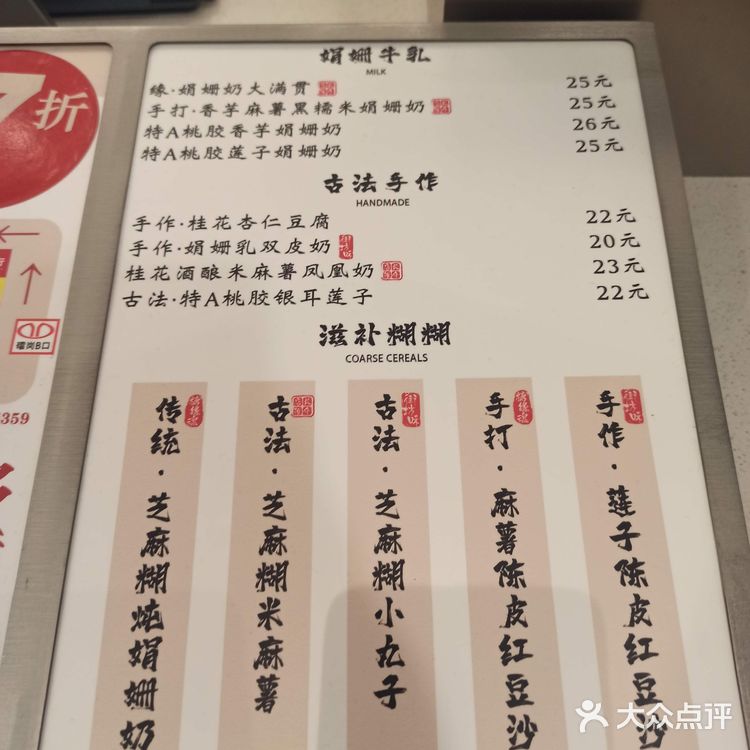 娟姗牛乳
MILK
缘·娟姗奶大满贯 25元
手打·香芋麻薯黑糯米娟姗奶 25元
特A桃胶香芋娟姗奶 26元
特A桃胶莲子娟姗奶 25元
古法手作
HANDMADE
手作·桂花杏仁豆腐 22元
手作·娟姗乳双皮奶 20元
桂花酒酿米麻薯凤凰奶 23元
古法·特A桃胶银耳莲子 22元
滋补糊糊
COARSE CEREALS
传统·芝麻糊炖娟姗奶
古法·芝麻糊米麻薯
古法·芝麻糊小丸子
手打·麻薯陈皮红豆沙
手作·莲子陈皮红豆沙
7折
B口
359
大众点评